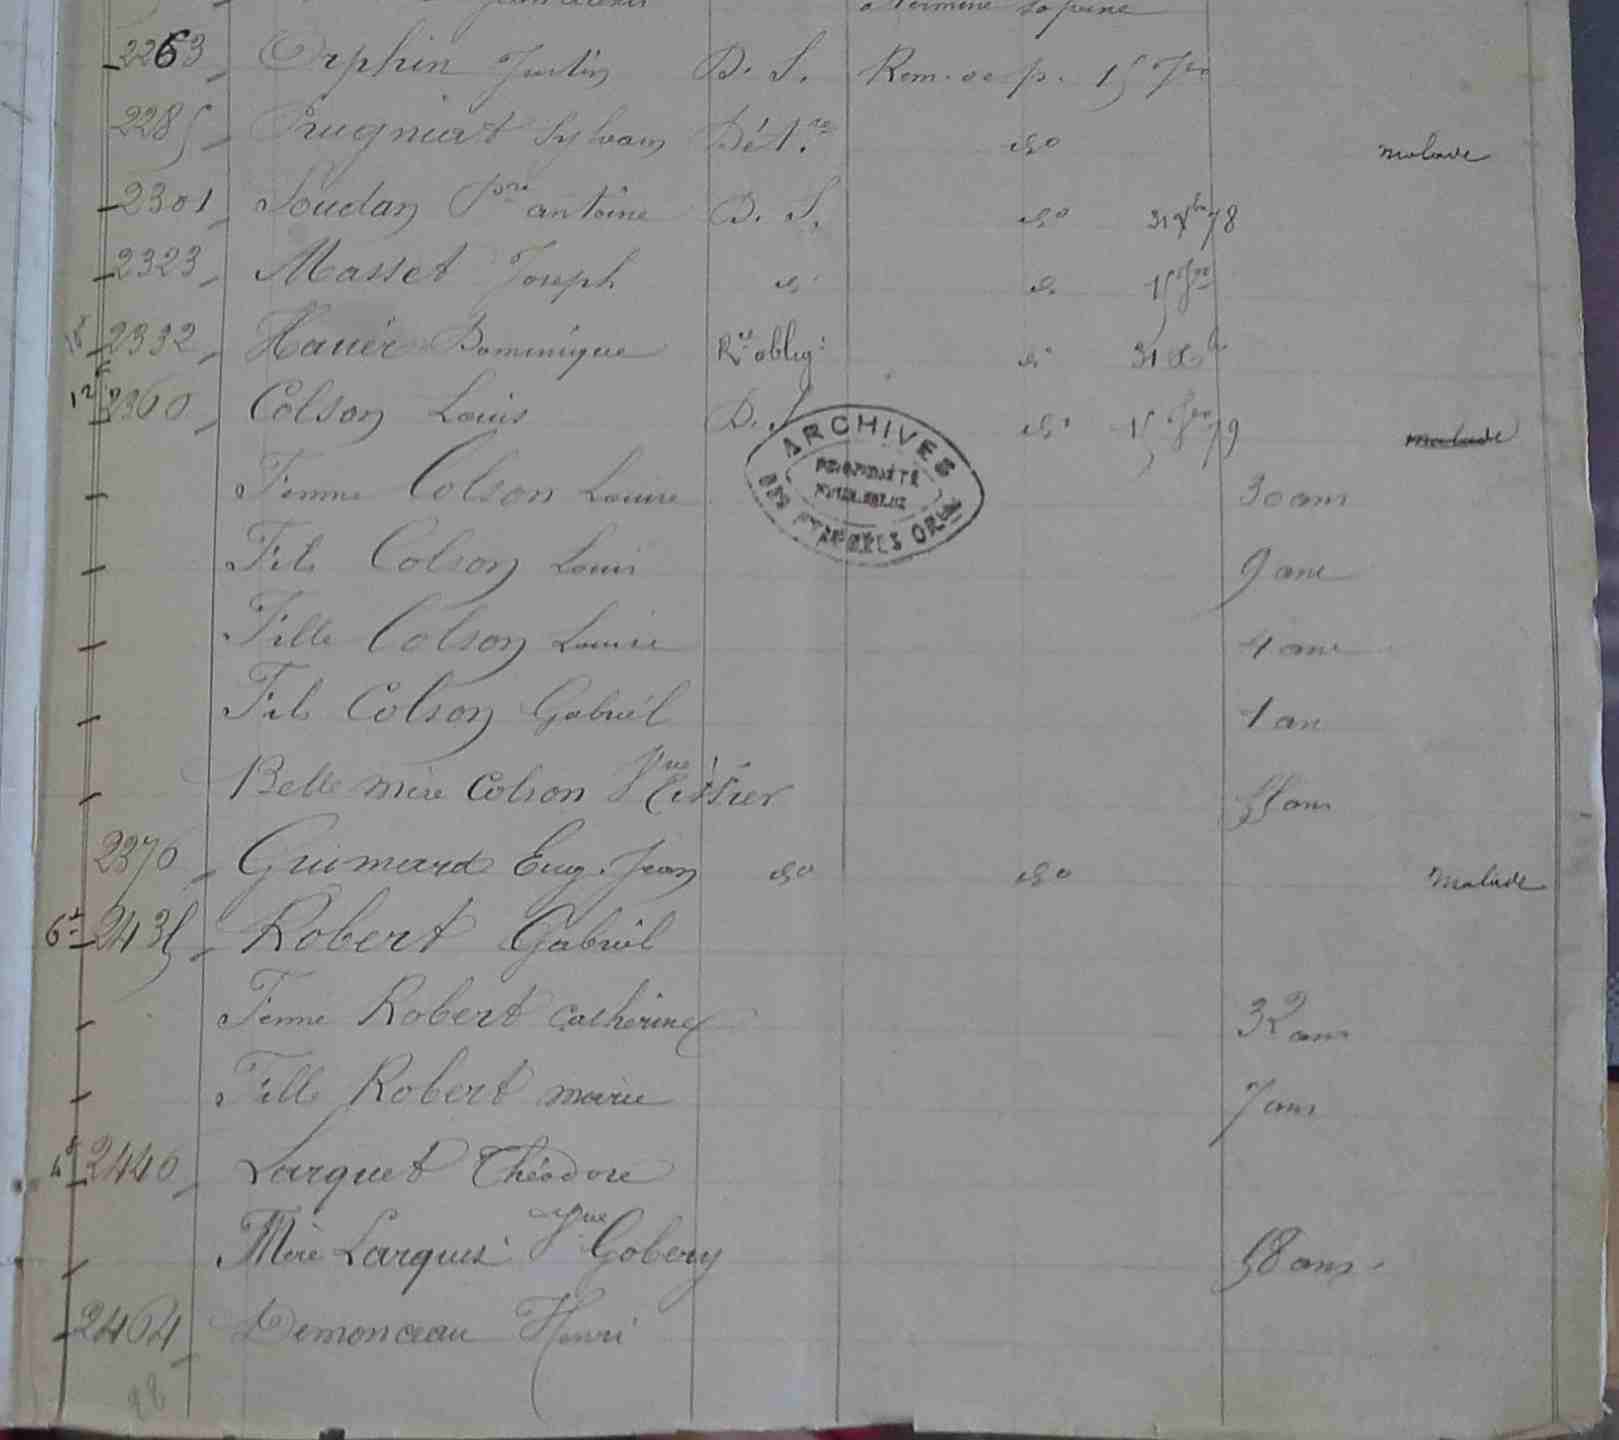 a terminé sa peine
2263 Orphin Justin D. S. Rem. de p. 15 7bre
2285 Prugniart Sylvain Dét.re do malade
2301 Soudan Pre antoine D. S. do 31 Xbre 78
2323 Masset Joseph d. d. 15
2332 Hauér Dominique Rt oblig: do 31
12 2360 Colson Louis D. S. do 15 79 malade
ARCHIVES
PROPRIÉTÉ
PUBLIQUE
Femme Colson Louise 30 ans
Fils Colson Louis 9 ans
Fille Colson Louise 4 ans
Fils Colson Gabriel 1 an
Belle mère Colson Vve 55 ans
2370 Guimard Eug. Jean do do Malade
2435 Robert Gabriel
Femme Robert Catherine 32 ans
Fille Robert marie 7 ans
2440 Larquet Théodore
Mère Larquet Vve Gobery 58 ans
2464 Demonceau Henri